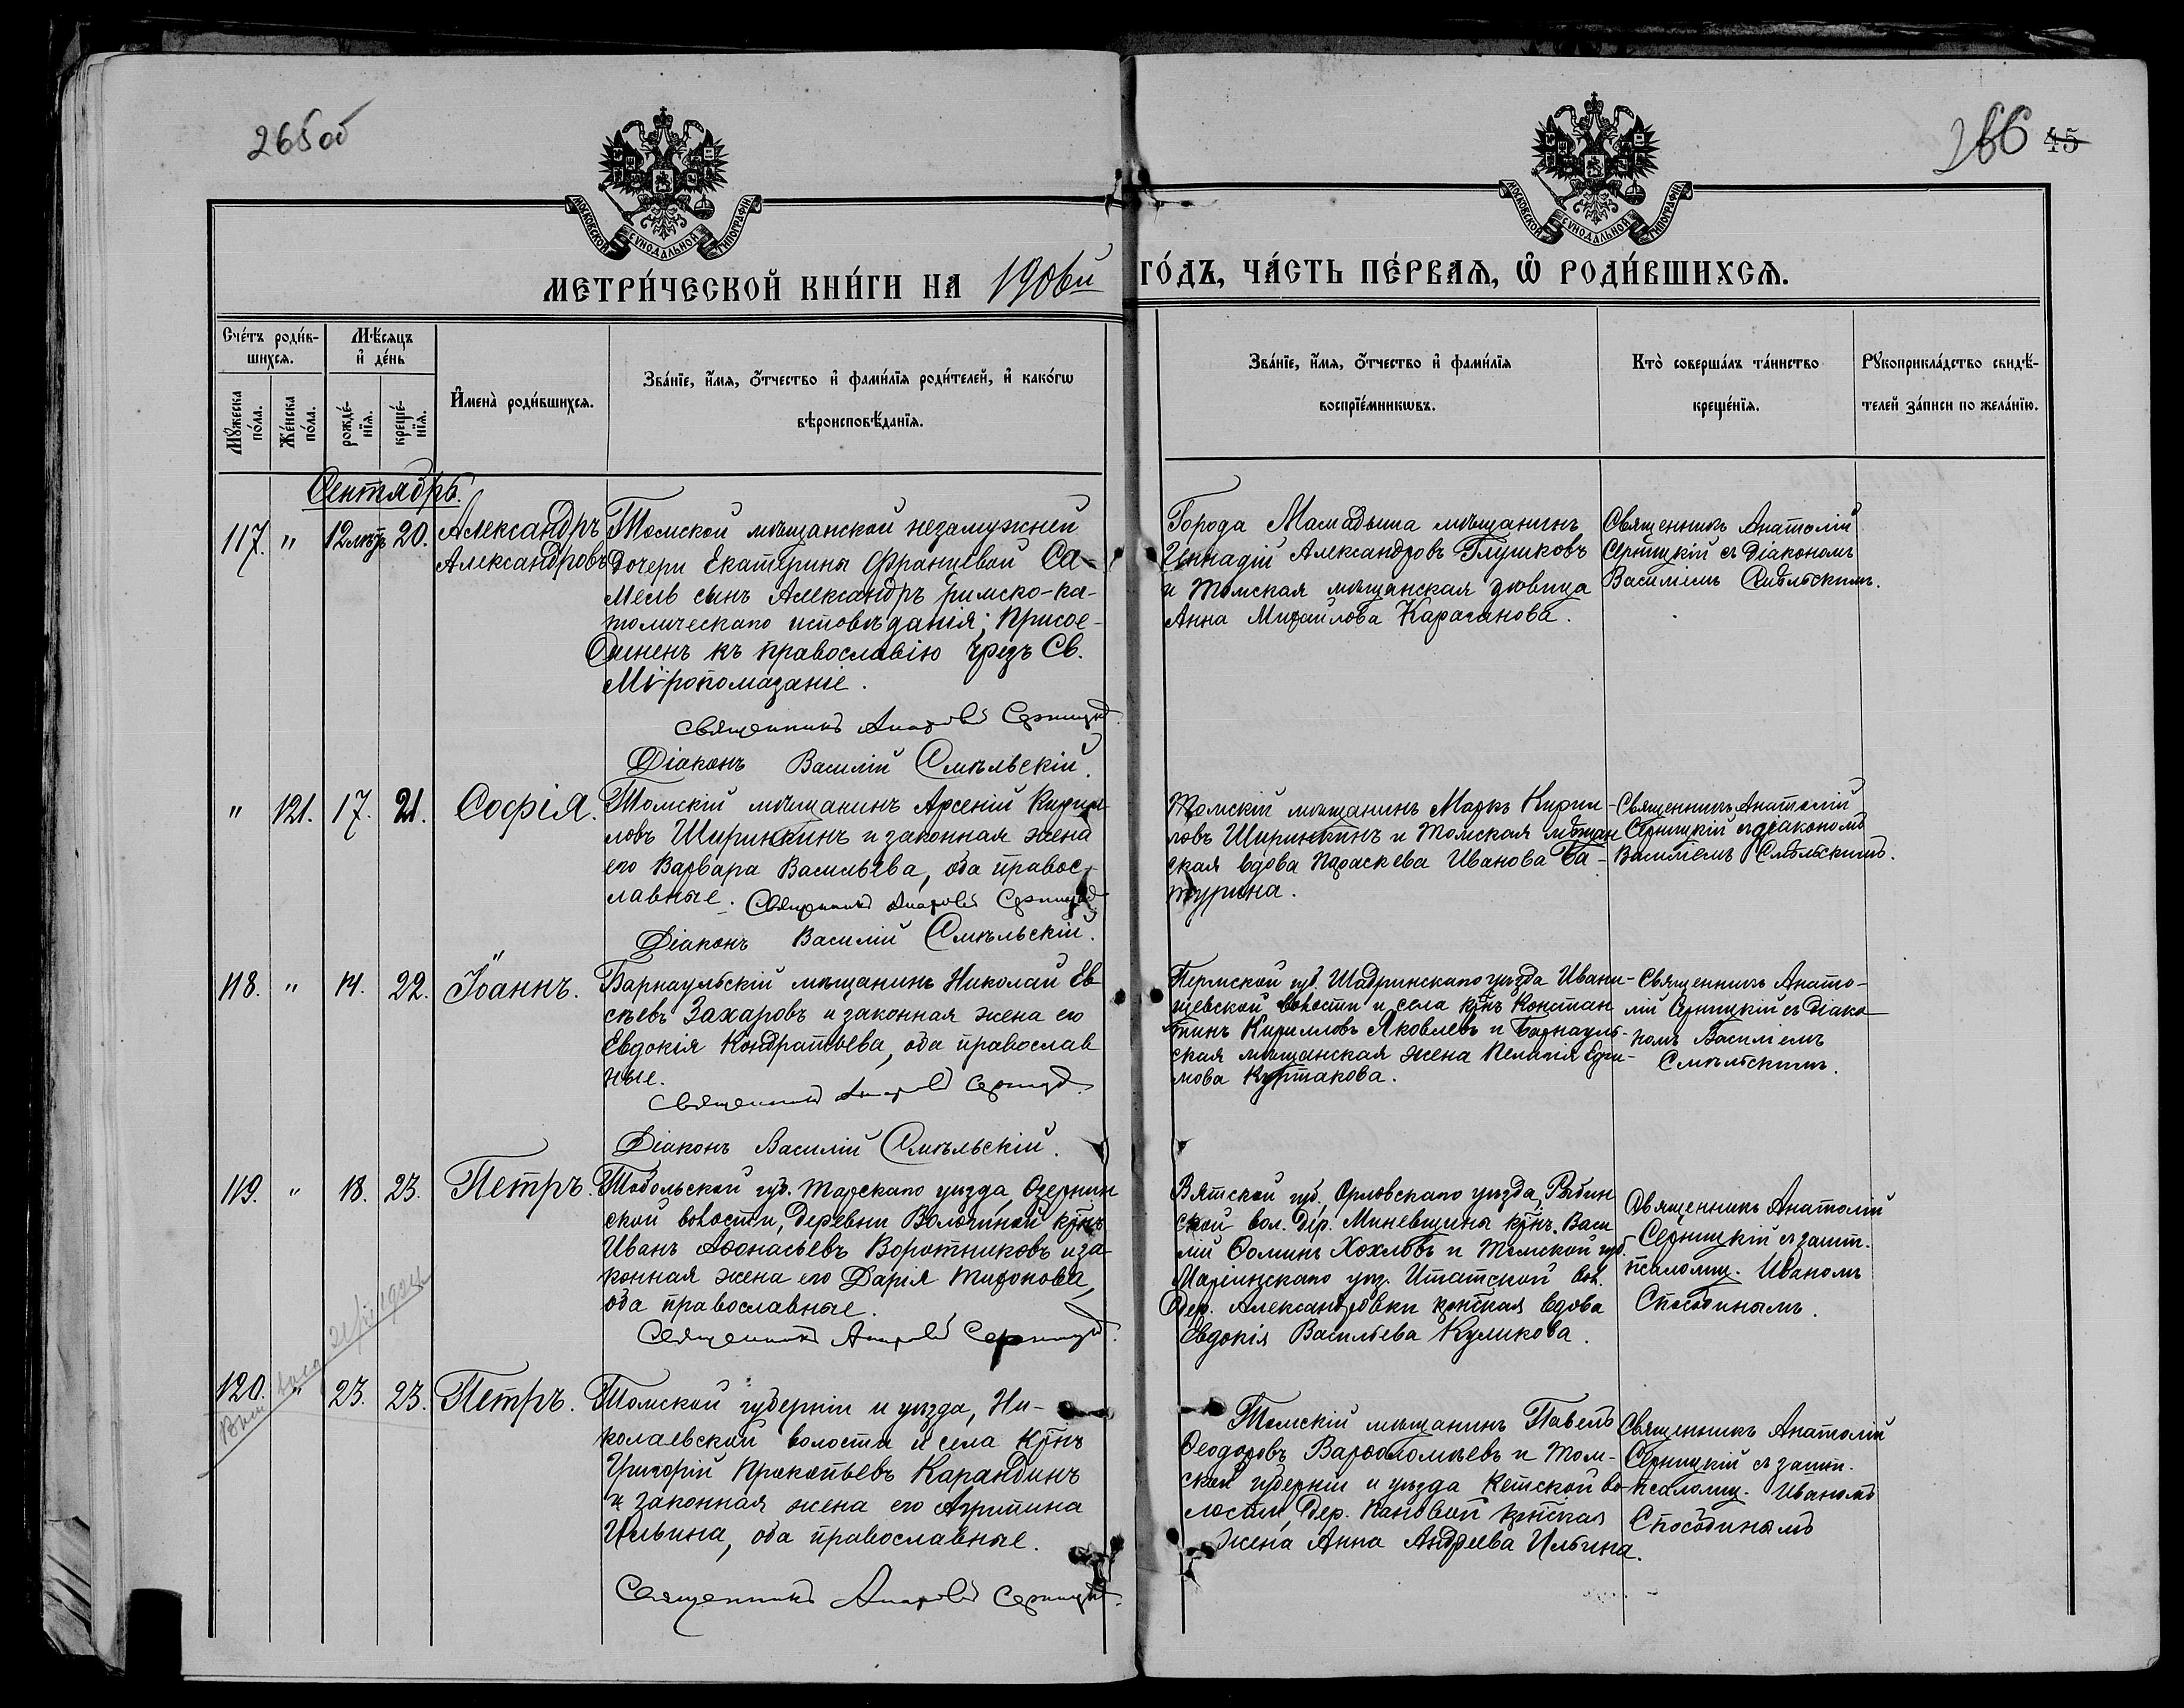 265 об
266 45
МОСКОВСКОЙ СѴНОДАЛЬНОЙ ТИПОГРАФІИ
МОСКОВСКОЙ СѴНОДАЛЬНОЙ ТИПОГРАФІИ
МЕТРИ́ЧЕСКОЙ КНИ́ГИ НА 1906й ГО́ДЪ, ЧА́СТЬ ПЕ́РВАЯ, Ѡ҆ РОДИ́ВШИХСЯ.
Сче́тъ роди́в-
шихся.
Мѣ́сяцъ
и҆ де́нь
Мꙋ́жеска
по́ла.
Же́нска
по́ла.
рожде́-
нїя.
креще́-
нїя.
И҆мена̀ роди́вшихся.
Зва́нїе, и҆́мя, ѻ҆́тчество и҆ фами́лїя роди́телей, и҆ како́гѡ
вѣроисповѣ́данїя.
Зва́нїе, и҆́мя, ѻ҆́тчество и҆ фами́лїя
воспрїе́мникѡвъ.
Кто̀ соверша́лъ та́инство
креще́нїя.
Рꙋкоприкла́дство свидѣ́-
телей за́писи по жела́нїю.
Сентябрь.
117. " 12 лѣтъ 20. Александръ
Александровъ
Томской мѣщанской незамужней
дочери Екатерины Францевой Са-
мель сынъ Александръ римско-ка-
толическаго исповѣданія; Присое-
диненъ къ православію чрезъ Св.
Мѵропомазаніе.
Священникъ Анатолій Серницкій.
Діаконъ Василій Смѣльскій.
Города Мамадыша мѣщанинъ
Геннадій Александровъ Глушковъ
и Томская мѣщанская дѣвица
Анна Михайлова Карачанова.
Священникъ Анатолій
Серницкій съ діакономъ
Василіемъ Смѣльскимъ.
" 121. 17. 21. Софія.
Томскій мѣщанинъ Арсеній Кирил-
ловъ Ширинкинъ и законная жена
его Варвара Васильева, оба правос-
лавные. Священникъ Анатолій Серницкій.
Діаконъ Василій Смѣльскій.
Томскій мѣщанинъ Маркъ Кирил-
ловъ Ширинкинъ и Томская мѣщан
ская вдова Параскева Иванова Ба-
турина.
Священникъ Анатолій
Серницкій съ діакономъ
Василіемъ Смѣльскимъ.
118. " 14. 22. Іоаннъ.
Барнаульскій мѣщанинъ Николай Ев
сѣевъ Захаровъ и законная жена его
Евдокія Кондратьева, оба православ
ные.
Священникъ Анатолій Серницкій.
Діаконъ Василій Смѣльскій.
Пермской губ. Шадринскаго уѣзда Ивани-
щевской волости и села крнъ Констан
тинъ Кирилловъ Яковлевъ и Барнауль-
ская мѣщанская жена Пелагія Ефи-
мова Куртакова.
Священникъ Анато-
лій Серницкій съ діако
номъ Василіемъ
Смѣльскимъ.
119. " 18. 23. Петръ.
Тобольской губ. Тарскаго уѣзда, Озернин
ской волости, деревни Волочиной крнъ
Иванъ Аѳонасьевъ Воротниковъ и за-
конная жена его Дарія Тихонова,
оба православные.
Священникъ Анатолій Серницкій.
Вятской губ. Орловскаго уѣзда, Рыбин
ской вол. дер. Миневщины крнъ. Васи
лій Ѳоминъ Хохловъ и Томской губ.
Маріинскаго уѣз. Итатской вол.
дер. Александровки крнская вдова
Евдокія Васильева Куликова.
Священникъ Анатолій
Серницкій съ зашт.
псаломщ. Иваномъ
Способинымъ.
120. " 23. 23. Петръ.
Томской губерніи и уѣзда, Ни-
колаевской волости и села Крнъ
Григорій Прокопьевъ Карандинъ
и законная жена его Агрипина
Ильина, оба православные.
Священникъ Анатолій Серницкій.
Томскій мѣщанинъ Павелъ
Ѳеодоровъ Варѳоломѣевъ и Том-
ской губерніи и уѣзда Кетской во-
лости, дер. Пановой крнская
жена Анна Андреева Ильина.
Священникъ Анатолій
Серницкій съ зашт.
псаломщ. Иваномъ
Способинымъ